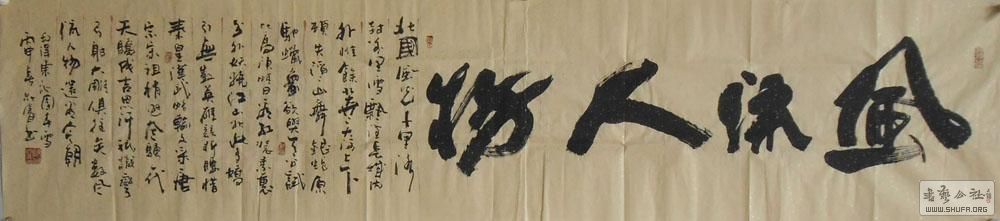 風流人物
北國風光千里冰
封萬里雪飄望長城內
外惟餘莽莽大河上下
頓失滔滔山舞銀蛇原
馳蠟象欲與天公試
比高須晴日看紅裝素裹
分外妖嬈江山如此多嬌
引無數英雄競折腰惜
秦皇漢武略輸文采唐
宗宋祖稍遜風騷一代
天驕成吉思汗祇識彎
弓射大雕俱往矣數風
流人物還看今朝
毛澤東沁園春雪
書藝公社
WWW.SHUFA.ORG